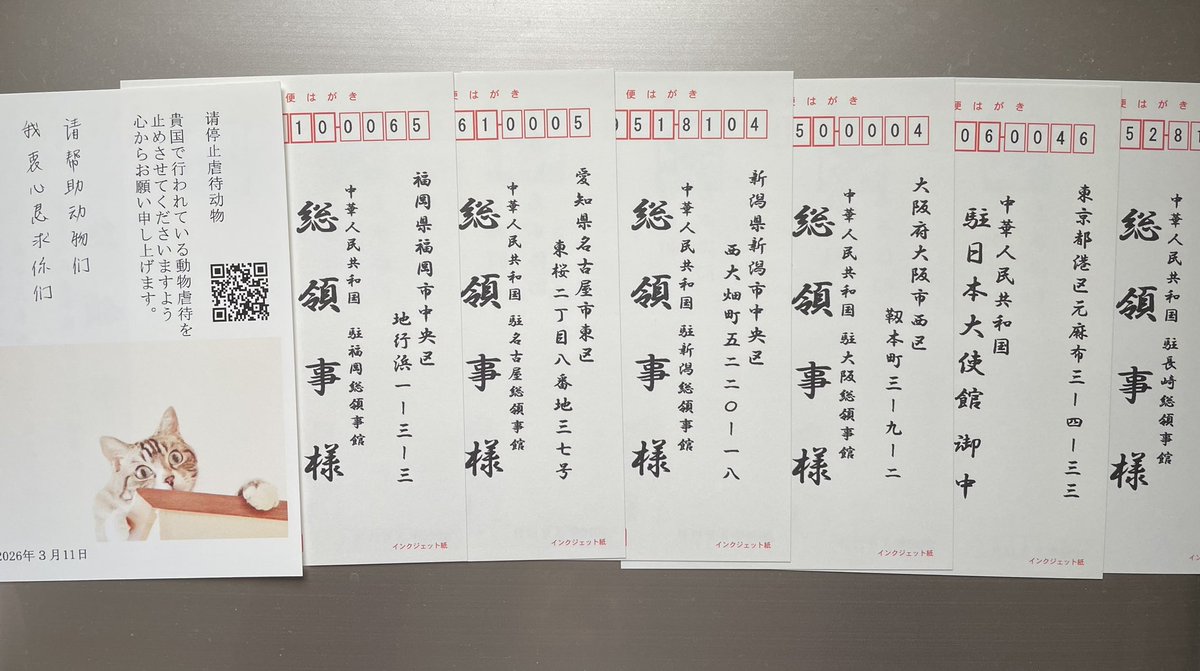 请停止虐待动物
貴国で行われている動物虐待を
止めさせてくださいますよう
心からお願い申し上げます。
请帮助动物们
我衷心恳求你们
2026年3月11日
便はがき
10-0065
福岡県福岡市中央区
地行浜一ー三ー三
中華人民共和国 駐福岡総領事館
総領事様
インクジェット紙
便はがき
61-0005
愛知県名古屋市東区
東桜二丁目八番地三七号
中華人民共和国 駐名古屋総領事館
総領事様
インクジェット紙
便はがき
51-8104
新潟県新潟市中央区
西大畑町五二二〇ー一八
中華人民共和国 駐新潟総領事館
総領事様
インクジェット紙
便はがき
50-0004
大阪府大阪市西区
靱本町三ー九ー二
中華人民共和国 駐大阪総領事館
総領事様
インクジェット紙
便はがき
06-0046
東京都港区元麻布三ー四ー三三
中華人民共和国
駐日本大使館 御中
インクジェット紙
便はがき
52-81
中華人民共和国 駐長崎総領事館
総領事様